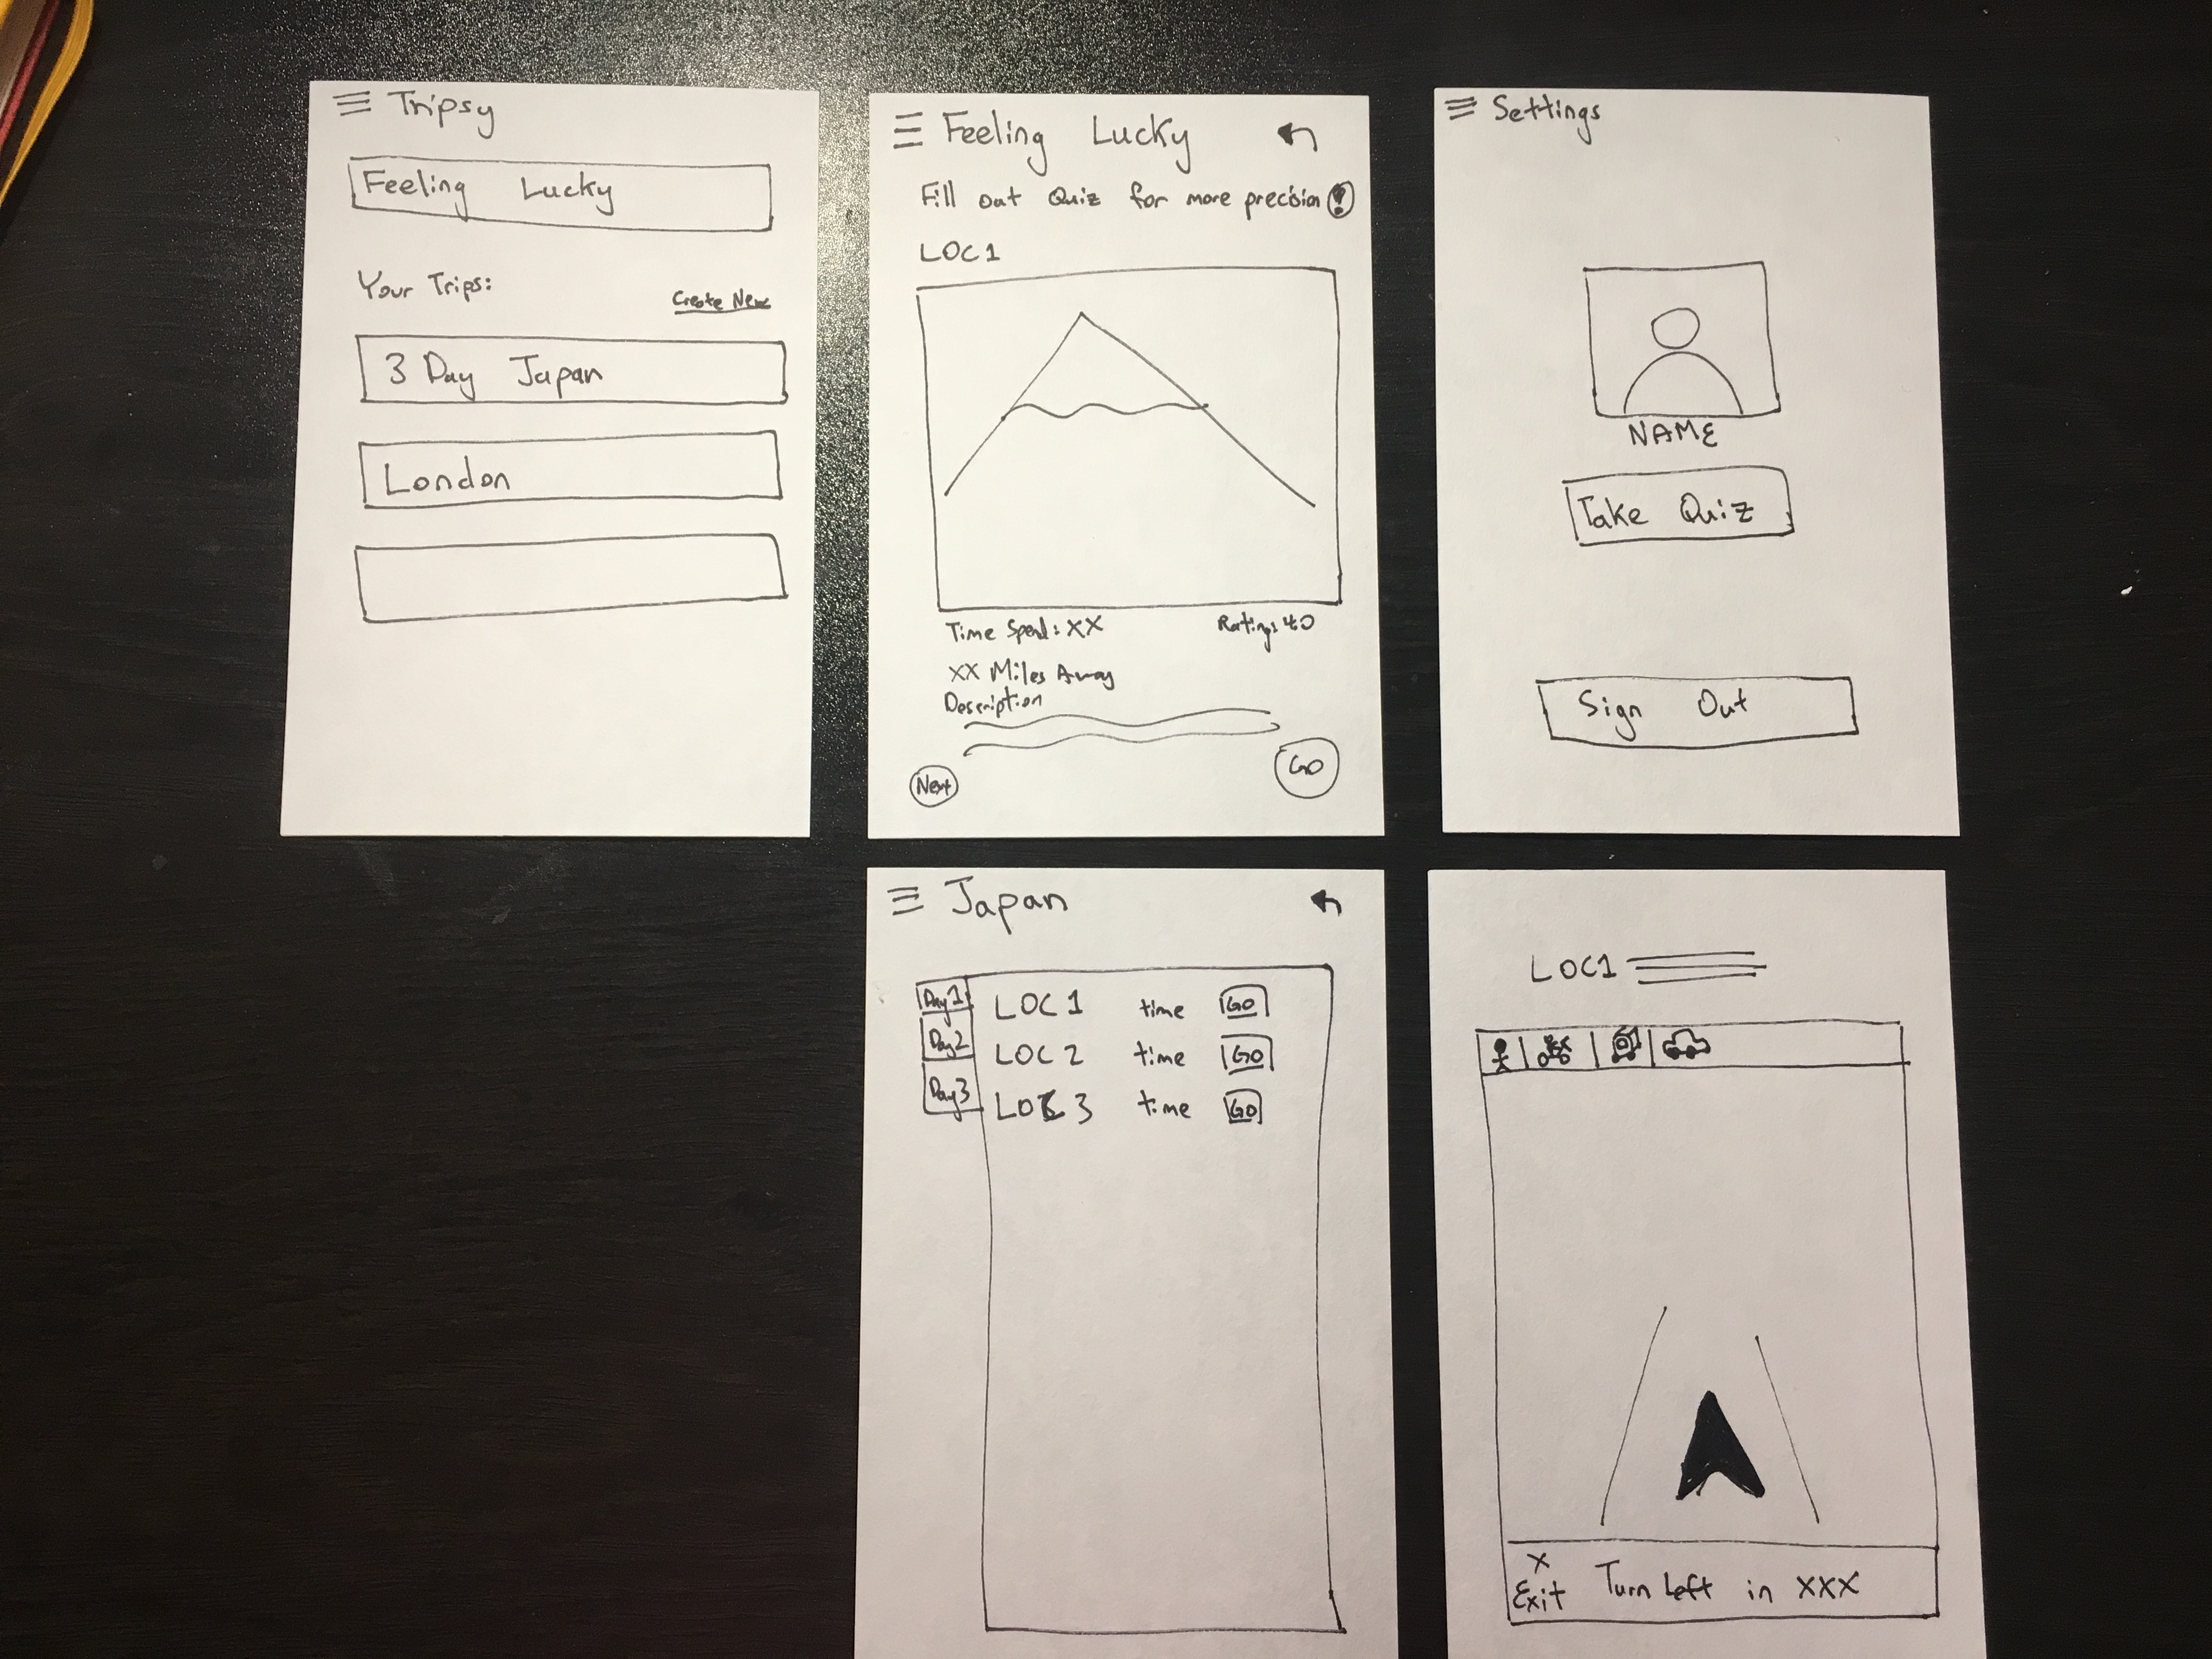 Tripsy
Feeling Lucky
Your Trips:
Create New
3 Day Japan
London
Feeling Lucky
Fill out Quiz for more precision !
LOC1
Time Spend: XX
Rating: 4.0
XX Miles Away
Description
Next
GO
Settings
NAME
Take Quiz
Sign Out
Japan
Day1
LOC 1 time GO
Day2
LOC 2 time GO
Day3
LOC 3 time GO
LOC1
X
Exit
Turn Left in XXX